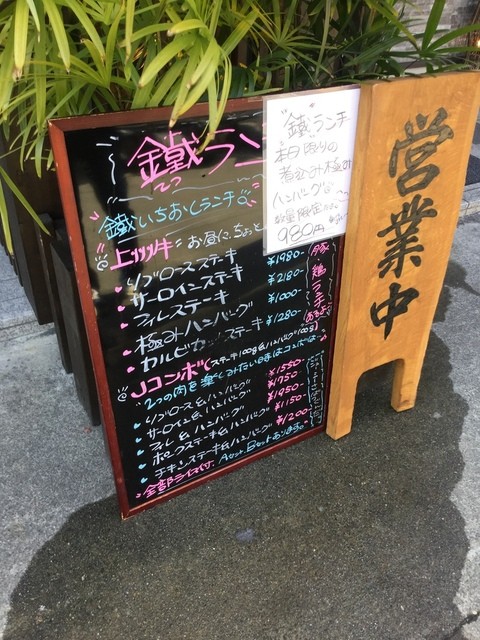 鐵ラン
てつ
鐵いちおしランチ
上州牛 お昼に、ちょっと
・リブロースステーキ
・サーロインステーキ ¥1980-
・フィレステーキ ¥2180-
・極みハンバーグ ¥1000-
・カルビカットステーキ ¥1280-
Jコンボ(ステーキ100g&ハンバーグ100g)
"2つの肉を楽しみたい日はコンボは
・リブロース&ハンバーグ ¥1550-
・サーロイン&ハンバーグ ¥1750
・フィレ&ハンバーグ ¥1950-
・ポークステーキ&ハンバーグ ¥1150-
・チキンステーキ&ハンバーグ ¥1200-
全部ライス付、Aセット、Bセットあります。
豚、鶏ランチ
あるよ
"鐵"ランチ
本日限りの
煮込み極み
ハンバーグ
数量限定
980円
営業中